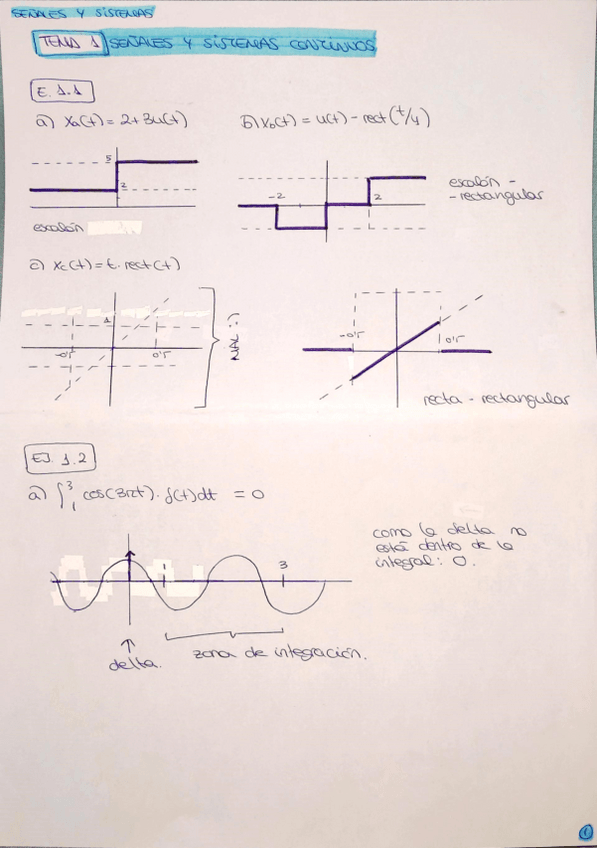 SEÑALES Y SISTEMAS
TEMA 1 SEÑALES Y SISTEMAS CONTINUOS
E. 1.1
a) Xa(t) = 2+3u(t)
b) Xb(t) = u(t) - rect(t/4)
5
2
-2
2
escalón -
- rectangular
escalón
c) Xc(t) = t. rect(t)
1
-0'5
0'5
MAL :)
-0'5
0'5
recta - rectangular
EJ. 1.2
a) ∫₁³ cos(3πt). δ(t)dt = 0
como la delta no
está dentro de la
integral: 0.
1
3
delta.
zona de integración.
1